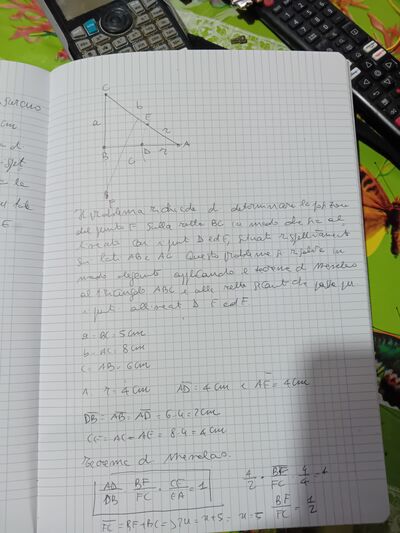 C
b
E
a
r
B
D
r
A
c
F
Il problema richiede di determinare la posizione
del punto F sulla retta BC in modo che sia al
lineato con i punti D ed E, situati rispettivamente
sui lati AB e AC Questo problema si risolve in
modo elegante applicando il teorema di Menelao
al triangolo ABC e alla retta secante che passa per
i punti allineati D E ed F
a = BC = 5cm
b = AC = 8cm
c = AB = 6cm
1. r = 4cm AD = 4cm e AE = 4cm
DB = AB - AD = 6-4 = 2cm
CE = AC - AE = 8-4 = 4cm
Teorema di Menelao
AD/DB · BF/FC · CE/EA = 1
4/2 · BF/FC · 4/4 = 1
BF/FC = 1/2
FC = BF + BC => 2x = x+5 = x = 5